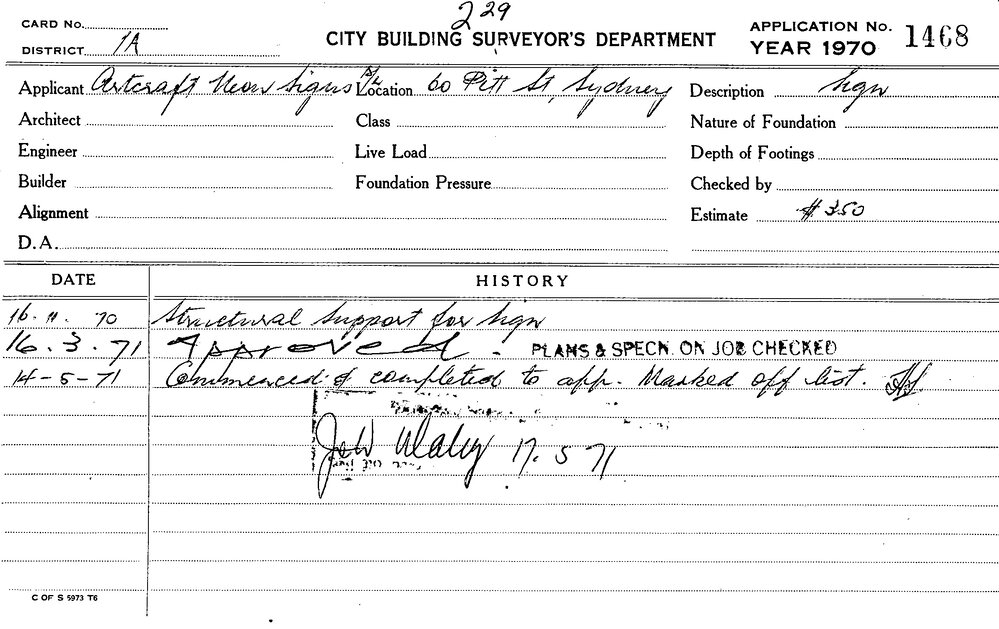 229
CARD No. CITY BUILDING SURVEYOR'S DEPARTMENT APPLICATION No. 1468
DISTRICT 1A YEAR 1970
Applicant Artcraft Neon Signs P/L Location 60 Pitt St, Sydney Description Sign
Architect Class Nature of Foundation
Engineer Live Load Depth of Footings
Builder Foundation Pressure Checked by
Alignment Estimate $350
D.A.
DATE HISTORY
16. 11. 70 Structural Support for Sign
16. 3. 71 Approved. PLANS & SPECN. ON JOB CHECKED
14-5-71 Commenced & completed to app. Marked off list.
17. 5 71
C OF S 5973 T6